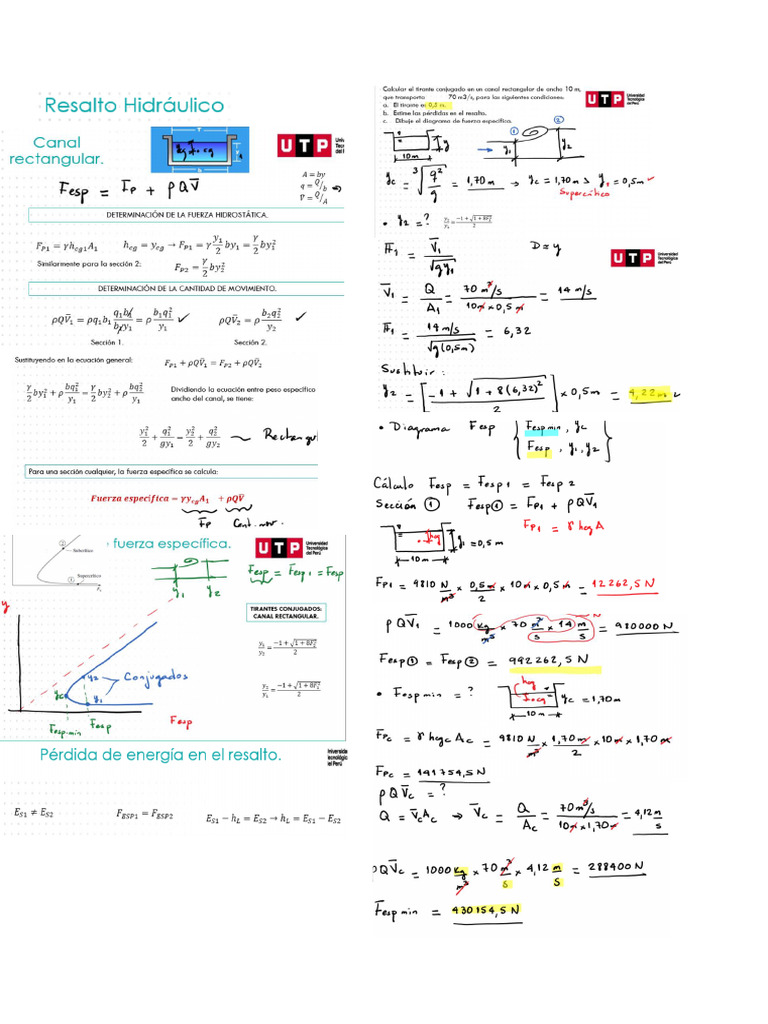 Resalto Hidráulico
Canal
rectangular.
UTP
F esp = Fp + ρQV̄
A = by
q = Q/b
V̄ = Q/A
DETERMINACIÓN DE LA FUERZA HIDROSTÁTICA.
F_P1 = γh_cg1 A_1    h_cg = y_cg → F_P1 = γ y_1/2 by_1 = γ/2 by_1^2
Similarmente para la sección 2:    F_P2 = γ/2 by_2^2
DETERMINACIÓN DE LA CANTIDAD DE MOVIMIENTO.
ρQV̄_1 = ρq_1b_1 q_1b_1/b_1y_1 = ρ b_1q_1^2/y_1 ✓    ρQV̄_2 = ρ b_2q_2^2/y_2 ✓
Sección 1.    Sección 2.
Sustituyendo en la ecuación general:    F_P1 + ρQV̄_1 = F_P2 + ρQV̄_2
γ/2 by_1^2 + ρ bq_1^2/y_1 = γ/2 by_2^2 + ρ bq_2^2/y_2    Dividiendo la ecuación entre peso específico
ancho del canal, se tiene:
y_1^2/2 + q_1^2/gy_1 = y_2^2/2 + q_2^2/gy_2    Rectangul
Para una sección cualquier, la fuerza específica se calcula:
Fuerza específica = γy_cg A_1 + ρQV̄
Fp    Cant. mov.
fuerza específica.
UTP Universidad
Tecnológica
del Perú
Subcrítico
Supercrítico
Fesp = Fesp1 = Fesp
y1    y2
TIRANTES CONJUGADOS:
CANAL RECTANGULAR.
y_1/y_2 = (-1 + √(1 + 8F_2^2))/2
y_2/y_1 = (-1 + √(1 + 8F_1^2))/2
y
y2
Conjugados
yc
y1
Fesp min    Fesp    Fesp
Pérdida de energía en el resalto.
Universidad
Tecnológica
del Perú
E_S1 ≠ E_S2    F_ESP1 = F_ESP2    E_S1 − h_L = E_S2 → h_L = E_S1 − E_S2
Calcular el tirante conjugado en un canal rectangular de ancho 10 m,
que transporta 70 m3/s, para las siguientes condiciones:
a. El tirante es 0,5 m.
b. Estime las pérdidas en el resalto.
c. Dibuje el diagrama de fuerza específica.
UTP Universidad
Tecnológica
del Perú
y
10 m
① ②
y1    y2
yc = ∛(q²/g) = 1,70 m → yc = 1,70 m > y1 = 0,5 m ✓
Supercrítico
• y2 = ?    y_2/y_1 = (-1 + √(1 + 8F_1^2))/2
F1 = V̄1/√(g y1)    D ≈ y
UTP Universidad
Tecnológica
del Perú
V̄1 = Q/A1 = 70 m³/s / 10 m × 0,5 m = 14 m/s
F1 = 14 m/s / √(g(0,5m)) = 6,32
Sustituir:
y2 = [(-1 + √(1 + 8(6,32)²))/2] × 0,5 m = 4,22 m ✓
• Diagrama Fesp { Fesp min, yc
Fesp, y1, y2 }
Cálculo Fesp = Fesp 1 = Fesp 2
Sección ① Fesp① = Fp1 + ρQV̄1
Fp1 = γ hcg A
hcg
y1 = 0,5 m
10 m
Fp1 = 9810 N/m³ × 0,5 m/2 × 10 m × 0,5 m = 12 262,5 N
ρQV̄1 = 1000 kg/m³ × 70 m³/s × 14 m/s = 980000 N
Fesp① = Fesp② = 992 262,5 N
• Fesp min = ?    hcg    yc = 1,70 m
10 m
Fpc = γ hcgc Ac = 9810 N/m³ × 1,70 m/2 × 10 m × 1,70 m
Fpc = 141 754,5 N
ρQV̄c = ?
Q = V̄c Ac → V̄c = Q/Ac = 70 m³/s / 10 m × 1,70 m = 4,12 m/s
ρQV̄c = 1000 kg/m³ × 70 m³/s × 4,12 m/s = 288400 N
Fesp min = 430 154,5 N